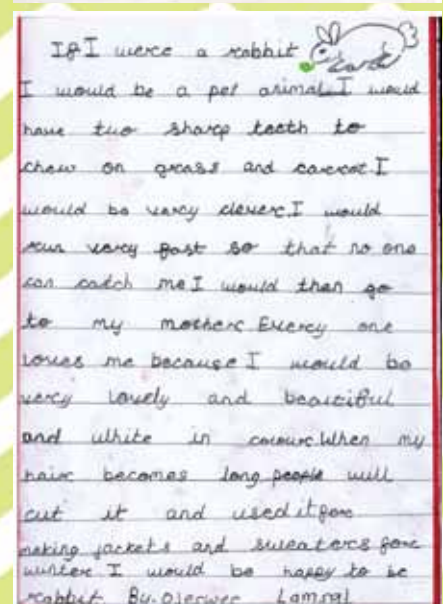 If I were a rabbit
I would be a pet animal. I would
have two sharp teeth to
chew on grass and carrot. I
would be very clever. I would
run very fast so that no one
can catch me I would then go
to my mother. Every one
loves me because I would be
very lovely and beautiful
and white in colour. When my
hair becomes long people will
cut it and used it for
making jackets and sweaters for
winter. I would be happy to be
rabbit. By. Lamsal